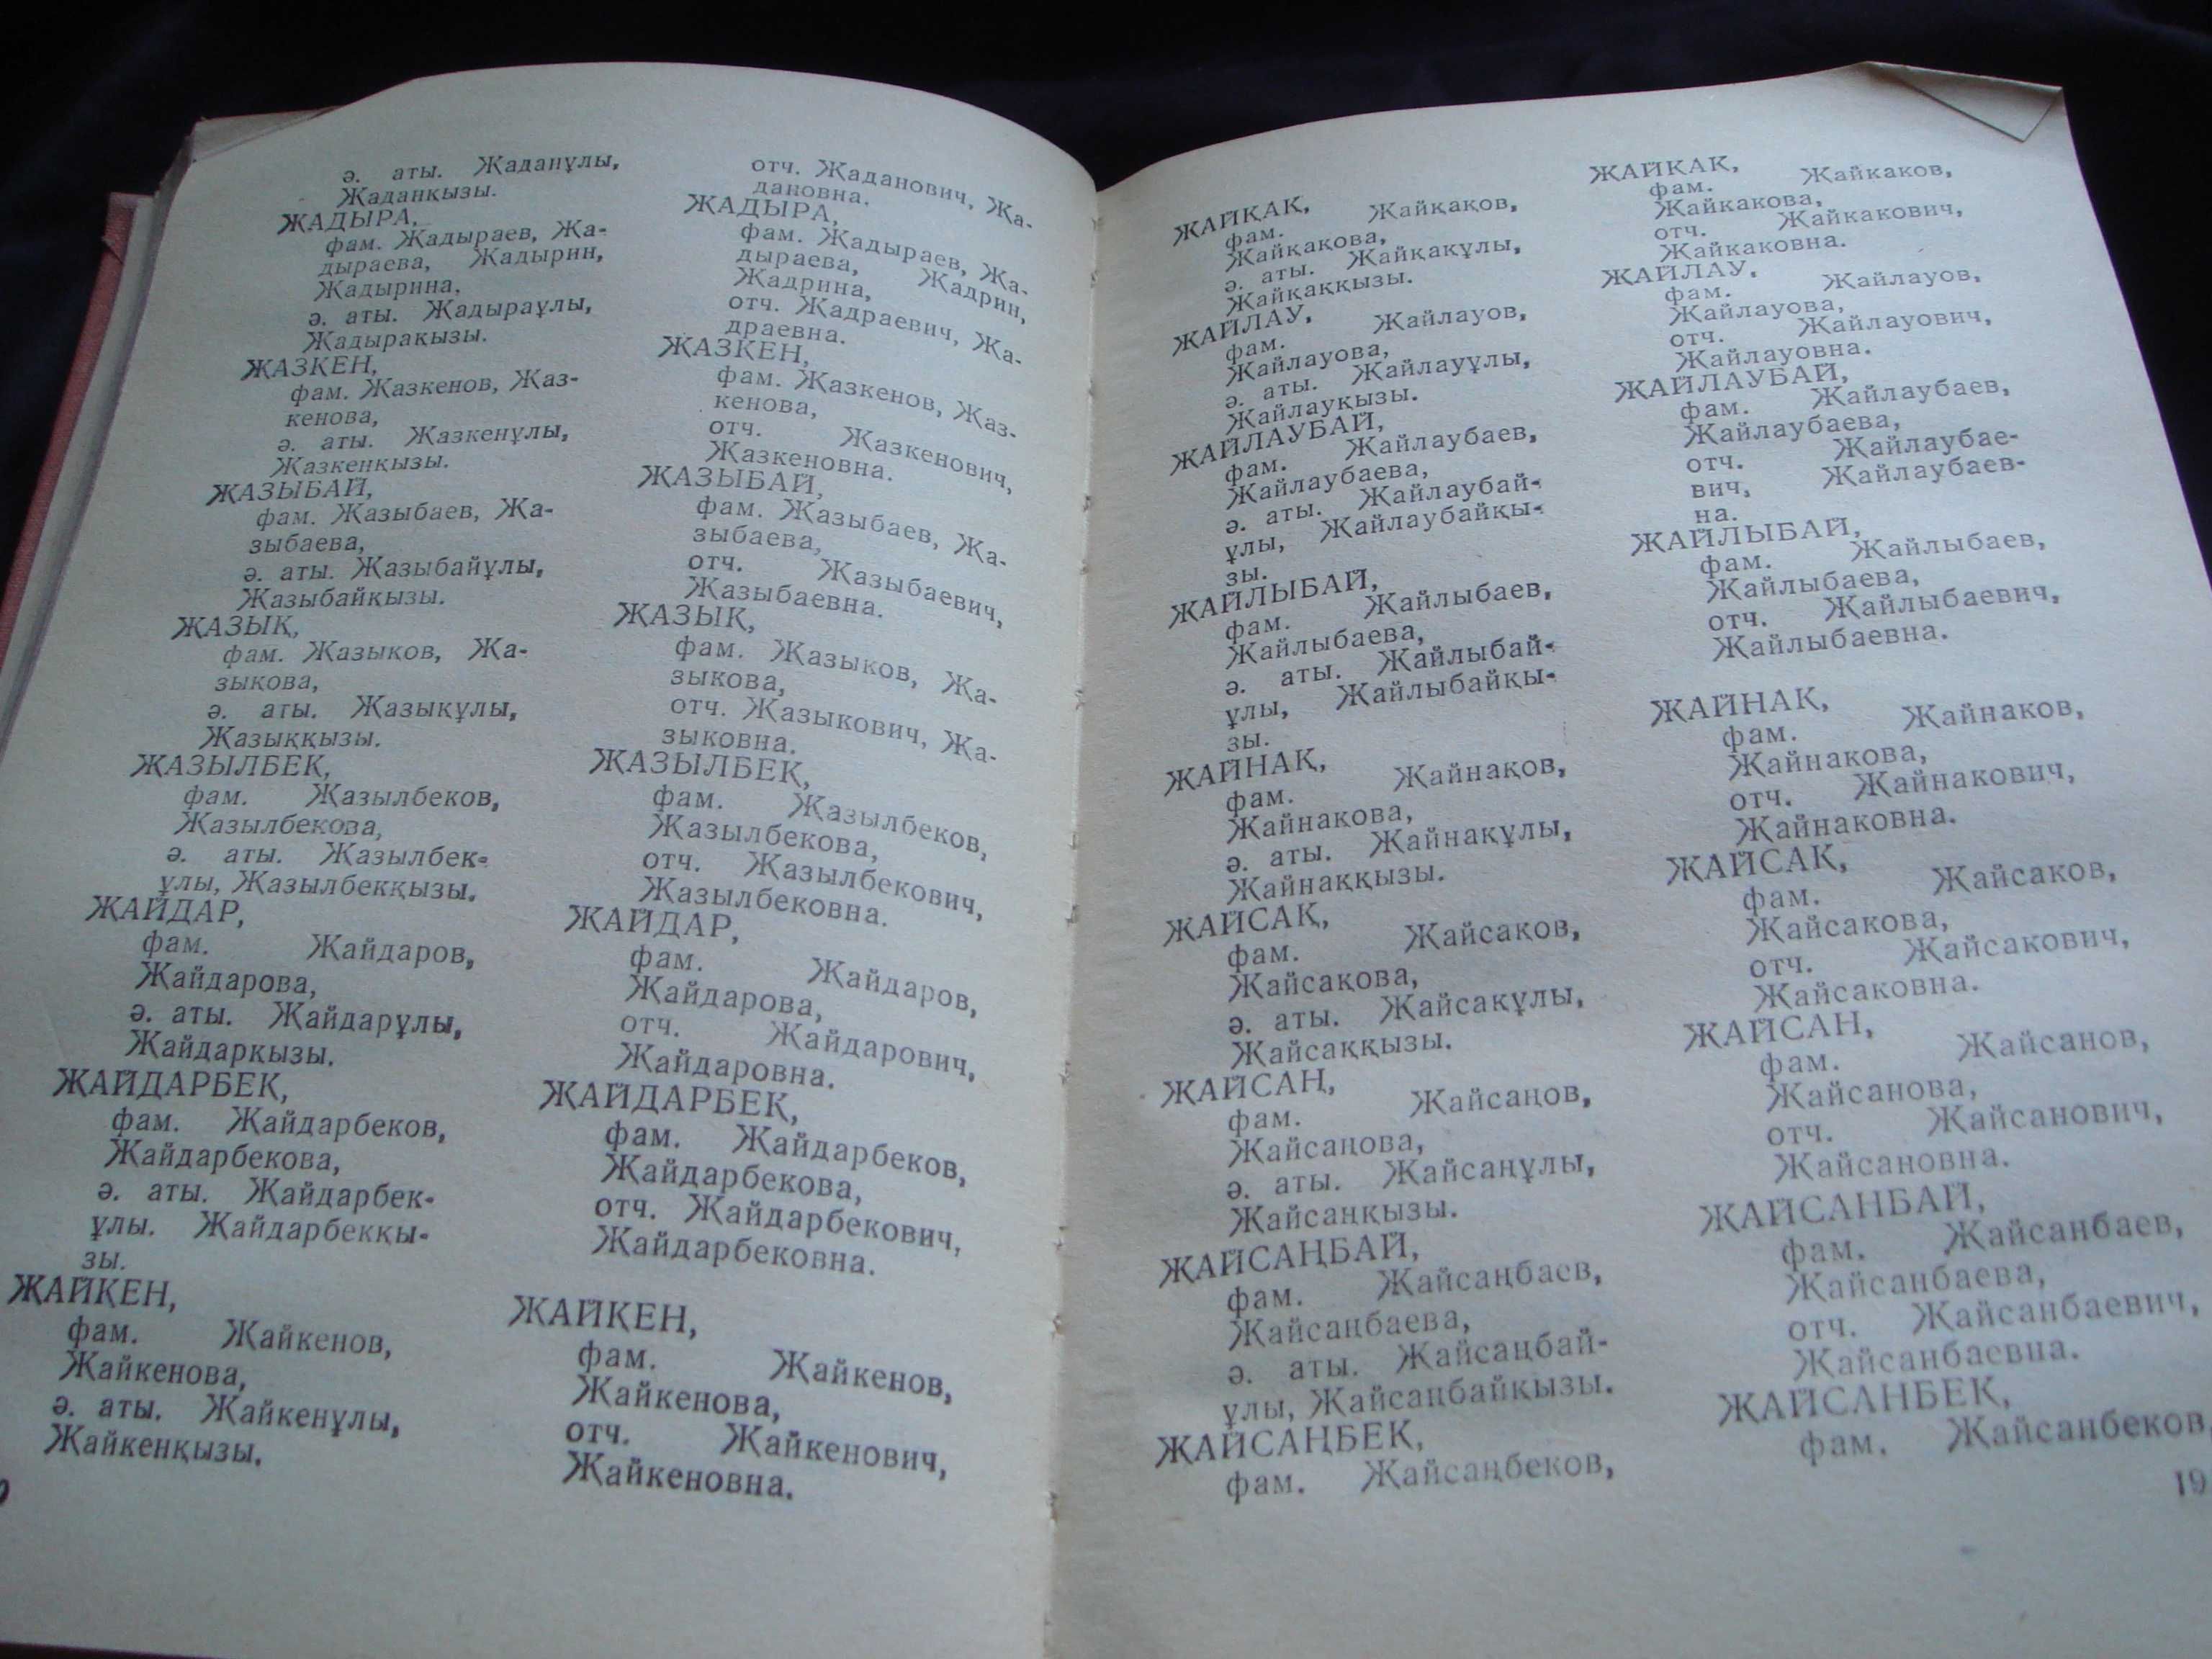 ә. аты. Жаданұлы,
Жаданқызы.
ЖАДЫРА,
фам. Жадыраев, Жа-
дыраева, Жадырин,
Жадырина,
ә. аты. Жадыраұлы,
Жадырақызы.
ЖАЗКЕН,
фам. Жазкенов, Жаз-
кенова,
ә. аты. Жазкенұлы,
Жазкенқызы.
ЖАЗЫБАЙ,
фам. Жазыбаев, Жа-
зыбаева,
ә. аты. Жазыбайұлы,
Жазыбайқызы.
ЖАЗЫҚ,
фам. Жазықов, Жа-
зықова,
ә. аты. Жазықұлы,
Жазыққызы.
ЖАЗЫЛБЕК,
фам. Жазылбеков,
Жазылбекова,
ә. аты. Жазылбек-
ұлы, Жазылбекқызы.
ЖАЙДАР,
фам. Жайдаров,
Жайдарова,
ә. аты. Жайдарұлы,
Жайдарқызы.
ЖАЙДАРБЕК,
фам. Жайдарбеков,
Жайдарбекова,
ә. аты. Жайдарбек-
ұлы. Жайдарбекқы-
зы.
ЖАЙКЕН,
фам. Жайкенов,
Жайкенова,
ә. аты. Жайкенұлы,
Жайкенқызы.
отч. Жаданович, Жа-
дановна.
ЖАДЫРА,
фам. Жадыраев, Жа-
дыраева, Жадрин,
Жадрина,
отч. Жадраевич, Жа-
драевна.
ЖАЗКЕН,
фам. Жазкенов, Жаз-
кенова,
отч. Жазкенович,
Жазкеновна.
ЖАЗЫБАЙ,
фам. Жазыбаев, Жа-
зыбаева,
отч. Жазыбаевич,
Жазыбаевна.
ЖАЗЫК,
фам. Жазыков, Жа-
зыкова,
отч. Жазыкович, Жа-
зыковна.
ЖАЗЫЛБЕК,
фам. Жазылбеков,
Жазылбекова,
отч. Жазылбекович,
Жазылбековна.
ЖАЙДАР,
фам. Жайдаров,
Жайдарова,
отч. Жайдарович,
Жайдаровна.
ЖАЙДАРБЕК,
фам. Жайдарбеков,
Жайдарбекова,
отч. Жайдарбекович,
Жайдарбековна.
ЖАЙКЕН,
фам. Жайкенов,
Жайкенова,
отч. Жайкенович,
Жайкеновна.
ЖАЙҚАҚ,
фам. Жайқақов,
Жайқақова,
ә. аты. Жайқақұлы,
Жайқаққызы.
ЖАЙЛАУ,
фам. Жайлауов,
Жайлауова,
ә. аты. Жайлауұлы,
Жайлауқызы.
ЖАЙЛАУБАЙ,
фам. Жайлаубаев,
Жайлаубаева,
ә. аты. Жайлаубай-
ұлы, Жайлаубайқы-
зы.
ЖАЙЛЫБАЙ,
фам. Жайлыбаев,
Жайлыбаева,
ә. аты. Жайлыбай-
ұлы, Жайлыбайқы-
зы.
ЖАЙНАҚ,
фам. Жайнақов,
Жайнақова,
ә. аты. Жайнақұлы,
Жайнаққызы.
ЖАЙСАҚ,
фам. Жайсақов,
Жайсақова,
ә. аты. Жайсақұлы,
Жайсаққызы.
ЖАЙСАҢ,
фам. Жайсаңов,
Жайсаңова,
ә. аты. Жайсаңұлы,
Жайсаңқызы.
ЖАЙСАҢБАЙ,
фам. Жайсаңбаев,
Жайсаңбаева,
ә. аты. Жайсаңбай-
ұлы, Жайсаңбайқызы.
ЖАЙСАҢБЕК,
фам. Жайсаңбеков,
ЖАЙКАК,
фам. Жайкаков,
Жайкакова,
отч. Жайкакович,
Жайкаковна.
ЖАЙЛАУ,
фам. Жайлауов,
Жайлауова,
отч. Жайлауович,
Жайлауовна.
ЖАЙЛАУБАЙ,
фам. Жайлаубаев,
Жайлаубаева,
отч. Жайлаубае-
вич, Жайлаубаев-
на.
ЖАЙЛЫБАЙ,
фам. Жайлыбаев,
Жайлыбаева,
отч. Жайлыбаевич,
Жайлыбаевна.
ЖАЙНАК,
фам. Жайнаков,
Жайнакова,
отч. Жайнакович,
Жайнаковна.
ЖАЙСАК,
фам. Жайсаков,
Жайсакова,
отч. Жайсакович,
Жайсаковна.
ЖАЙСАН,
фам. Жайсанов,
Жайсанова,
отч. Жайсанович,
Жайсановна.
ЖАЙСАНБАЙ,
фам. Жайсанбаев,
Жайсанбаева,
отч. Жайсанбаевич,
Жайсанбаевна.
ЖАЙСАНБЕК,
фам. Жайсанбеков,